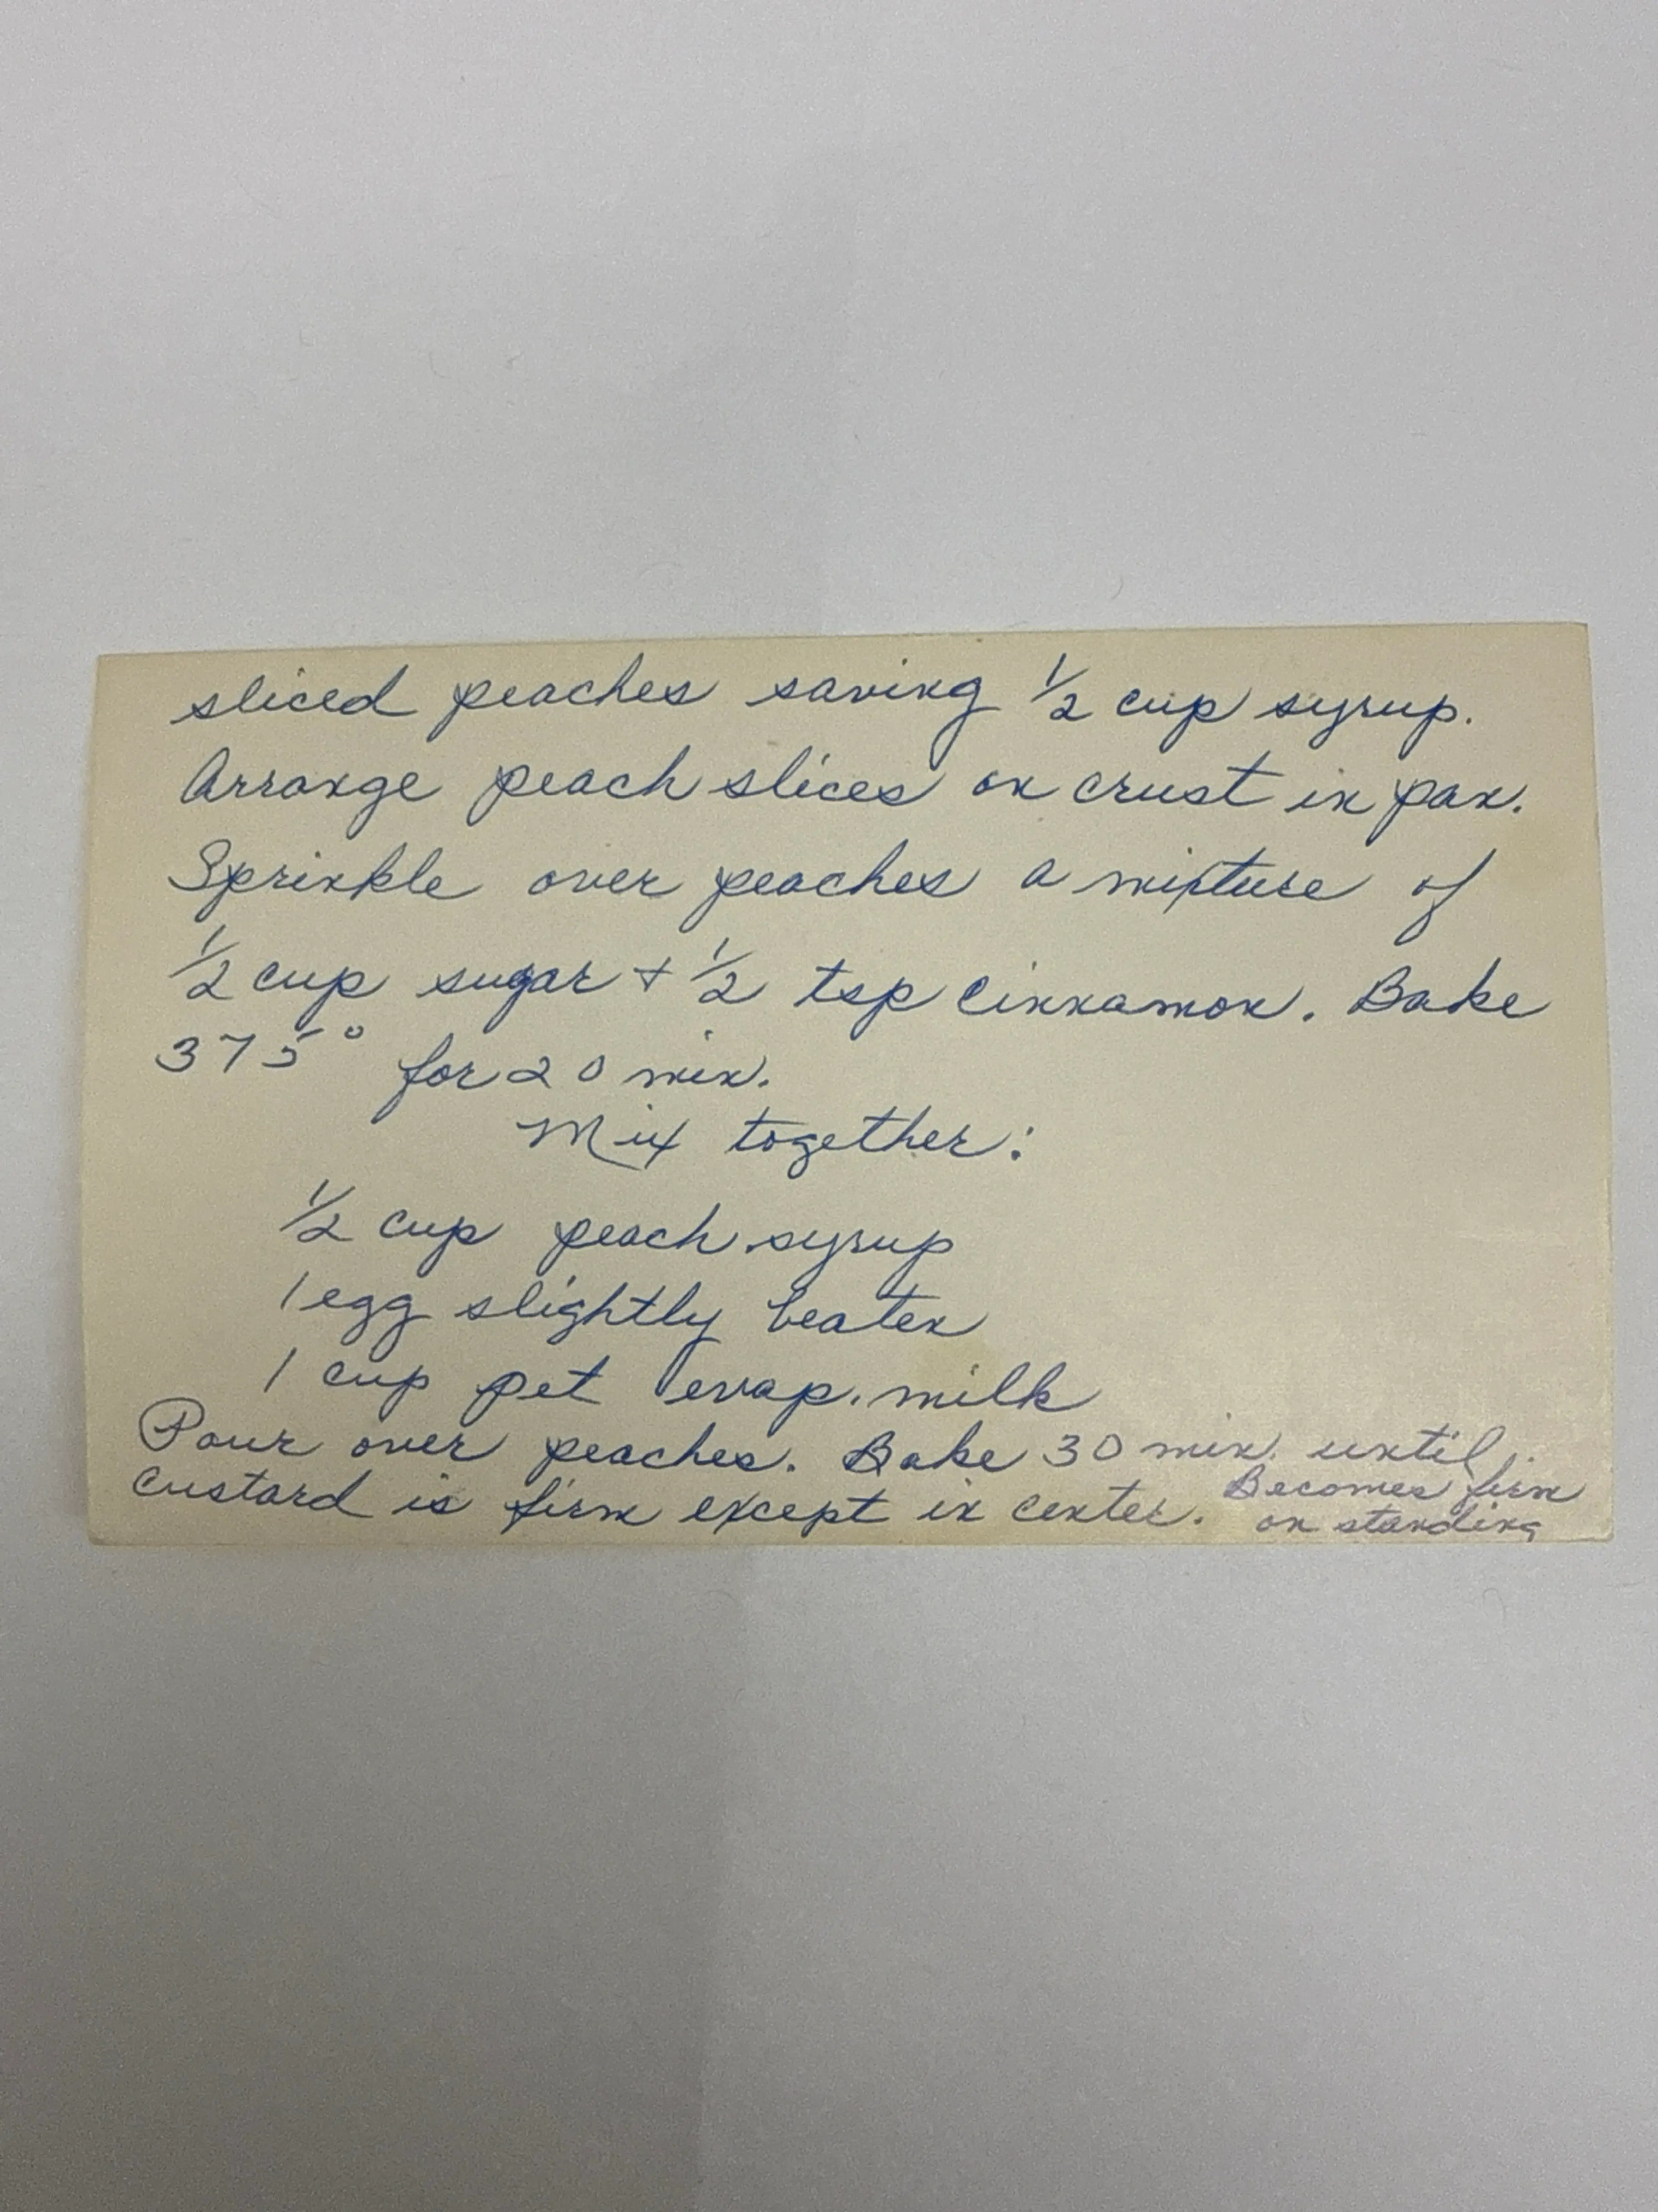 sliced peaches saving 1/2 cup syrup.
Arrange peach slices on crust in pan.
Sprinkle over peaches a mixture of
1/2 cup sugar + 1/2 tsp cinnamon. Bake
375° for 20 min.
Mix together:
1/2 cup peach syrup
1 egg slightly beaten
1 cup pet evap. milk
Pour over peaches. Bake 30 min. until
custard is firm except in center. Becomes firm
on standing